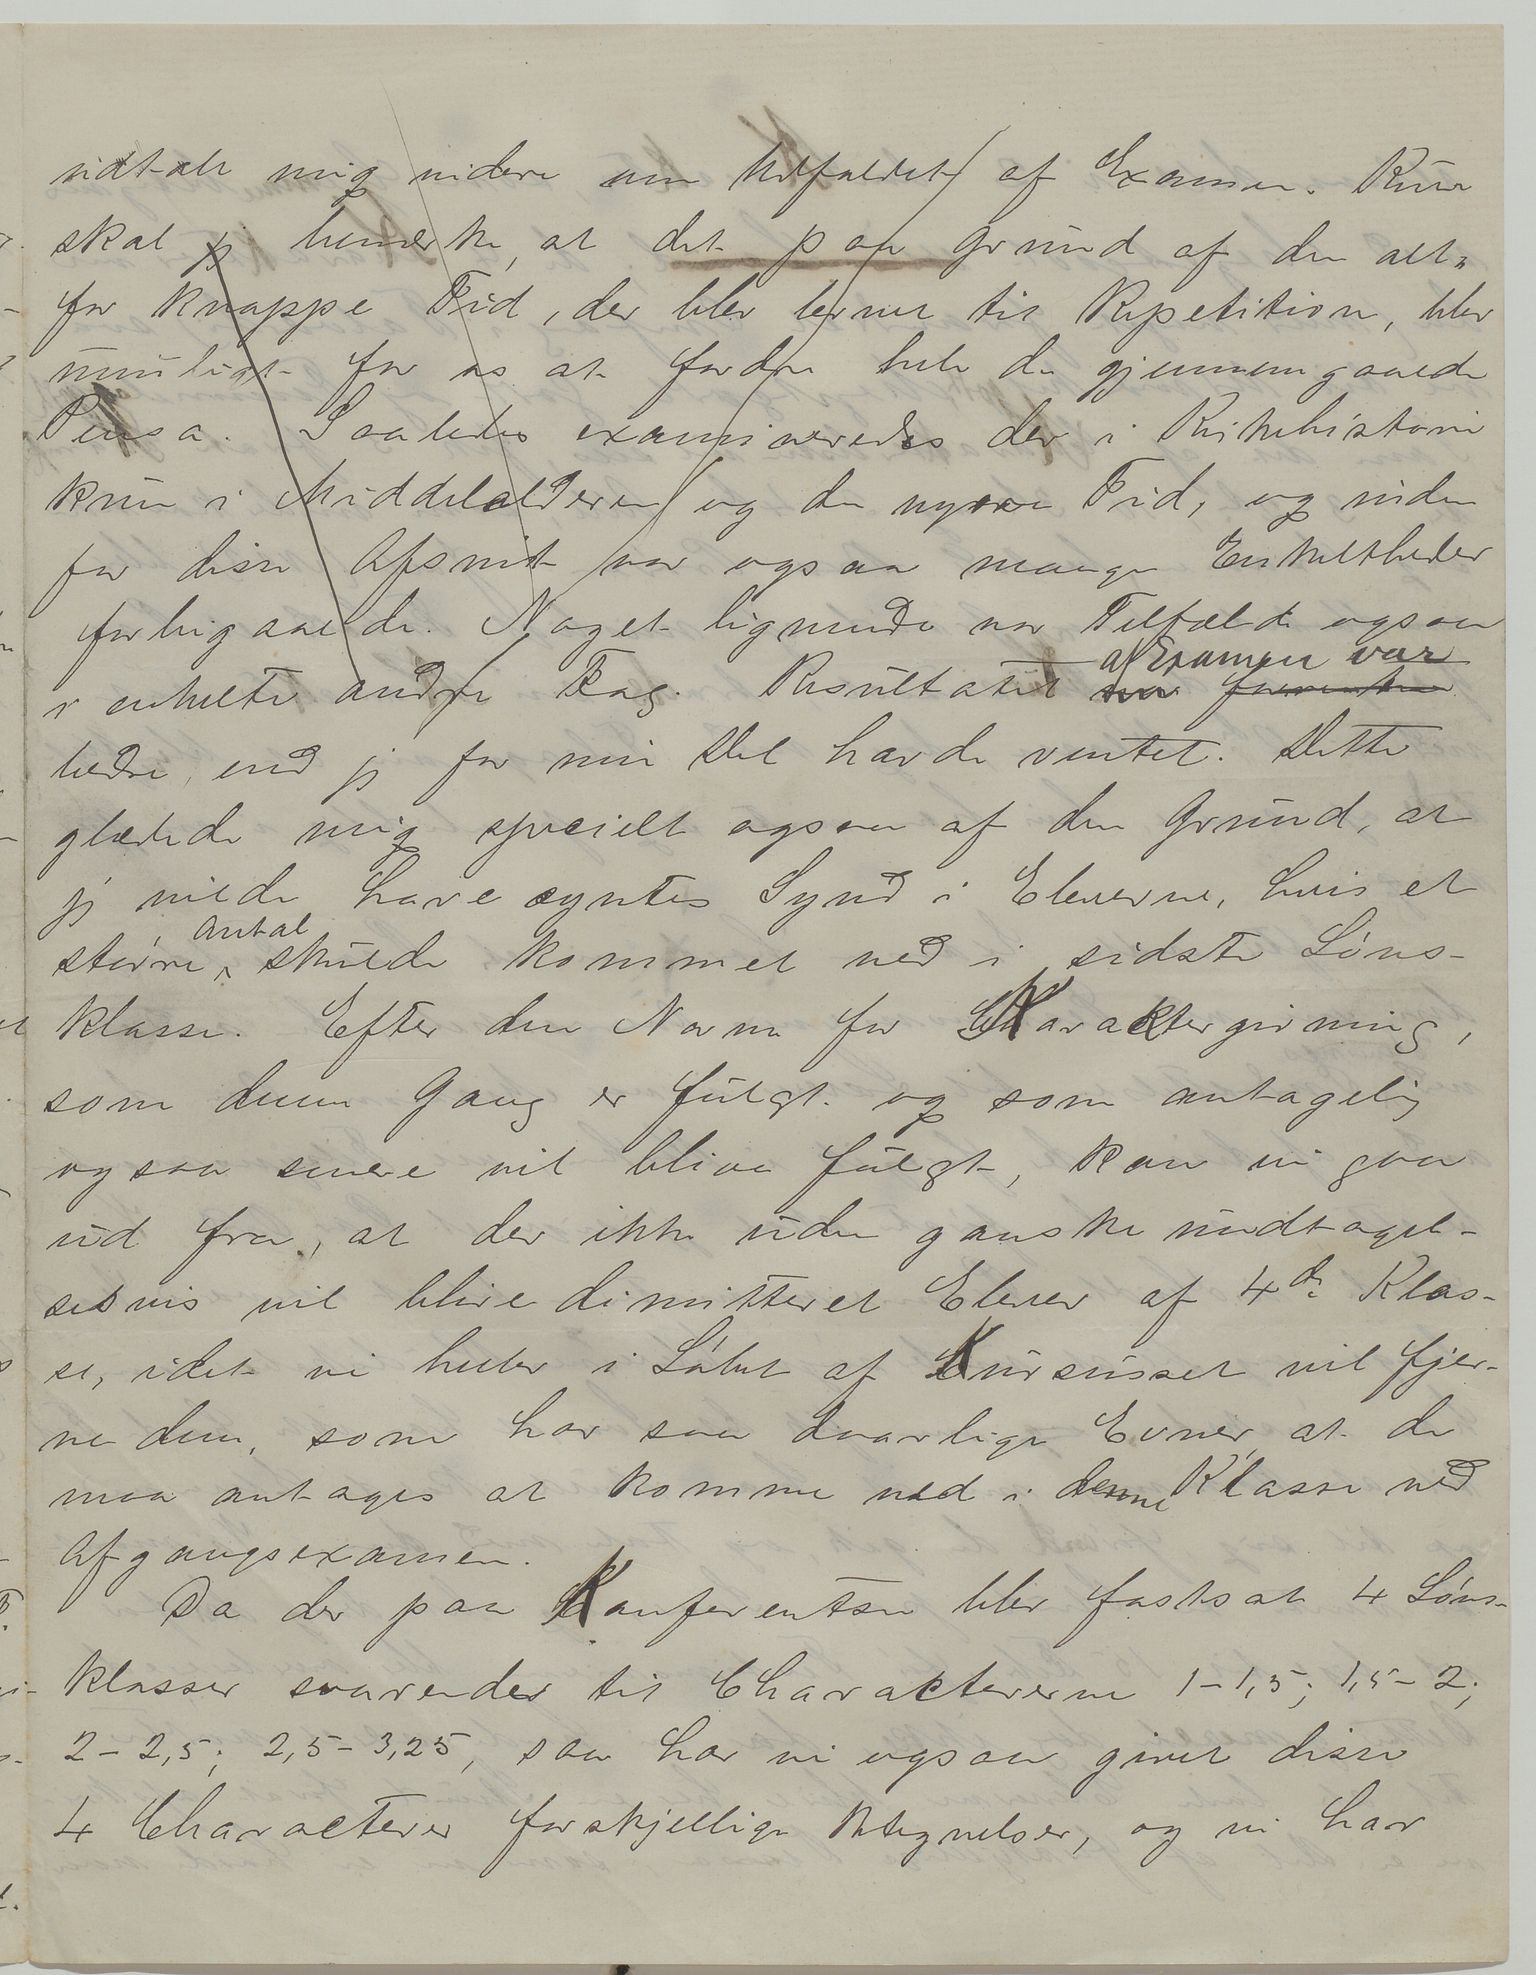 udtale mig videre om Udfaldet af Examen. Kun
skal jeg bemerke, at det paa Grund af den alt-
for knappe Tid, der blev levnet til Repetition, blev
umuligt for os at fordre hele de gjennemgaaede
Pensa. Saaledes examineredes der i Kirkehistorie
kun i Middelalderen og den nyere Tid, og inden
for disse Afsnit var ogsaa mange Enkeltheder
forbigaaede. Noget lignende var Tilfældet ogsaa
i enkelte andre Fag. Resultatet af Examen var
bedre, end jeg for min Del havde ventet. Dette
glædede mig specielt ogsaa af den Grund, at
jeg vilde have syntes Synd i Eleverne, hvis et
større Antal skulde kommet ned i sidste Løns-
klasse. Efter den Norm for Karaktergivning,
som denne Gang er fulgt og som antagelig
ogsaa senere vil blive fulgt, kan vi gaa
ud fra, at der ikke uden ganske undtagel-
sesvis vil blive dimitteret Elever af 4de Klas-
se, idet vi heller i Løbet af Kursusset vil fjer-
ne dem, som har saa daarlige Evner, at de
maa antages at komme ned i denne Klasse ved
Afgangsexamen.
Da der paa Konferentsen blev fastsat 4 Løns-
klasser svarendes til Charactererne 1-1,5; 1,5-2;
2-2,5; 2,5-3,25, saa har vi ogsaa givet disse
4 Characterer forskjellige Betegnelser, og vi har